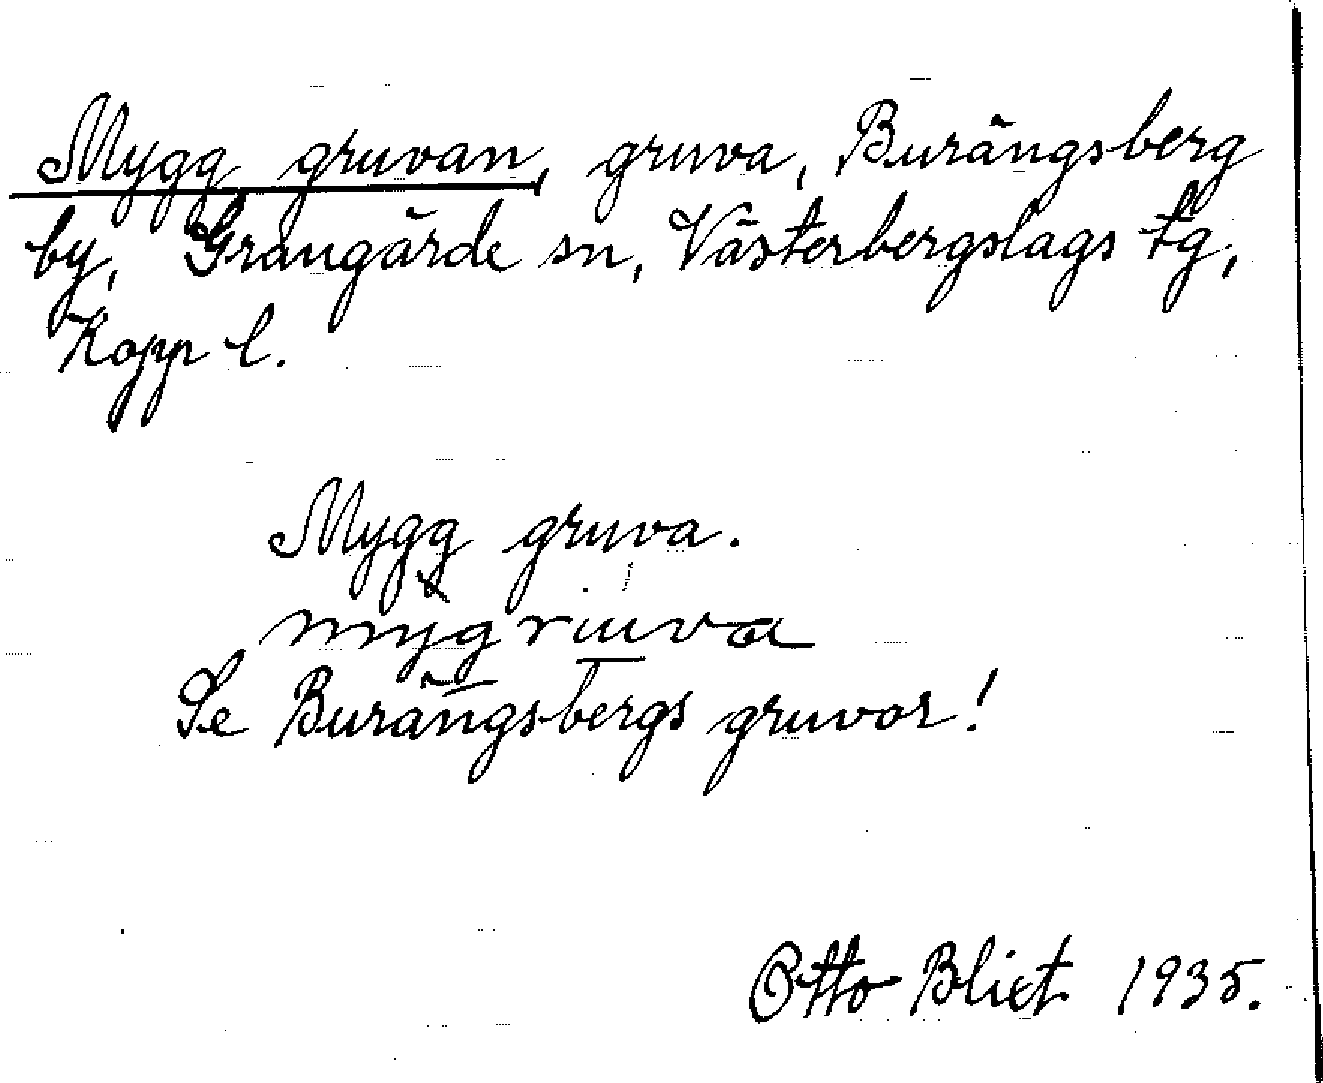 Mygg gruvan, gruva, Burängsberg
by, Grangärde sn, Västerbergslags tg,
Kopp l.
Mygg gruva.
mygruva
Se Burängsbergs gruvor!
Otto Blixt 1935.